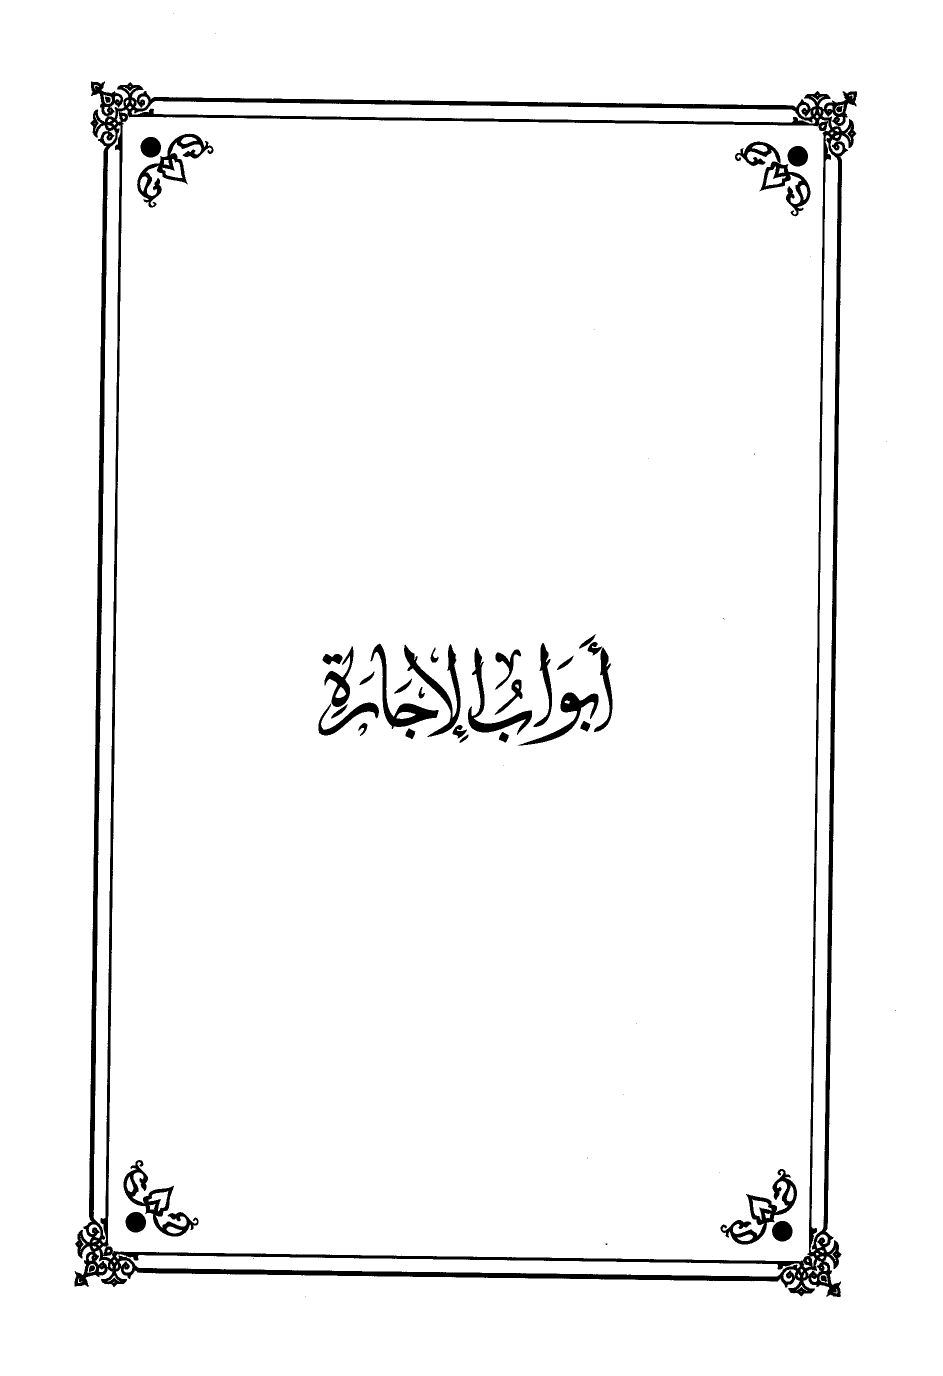 أَبْوَابُ الإِجَارَةِ